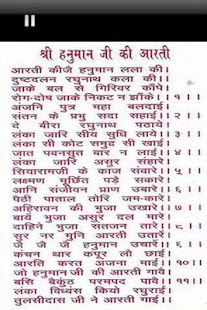 श्री हनुमान जी की आरती
आरती कीजै हनुमान लला की।
दुष्टदलन रघुनाथ कला की।।
जाके बल से गिरिवर काँपै।
रोग-दोष जाके निकट न झाँके।।१।।
अंजनि पुत्र महा बलदाई।
संतन के प्रभु सदा सहाई।।२।।
दे बीरा रघुनाथ पठाये।
लंका जारि सीय सुधि लाये।।३।।
लंका सी कोट समुद्र सी खाई।
जात पवनसुत बार न लाई।।४।।
लंका जारि असुर संहारे।
सियारामजी के काज संवारे।।५।।
लक्ष्मण मूर्छित पड़े सकारे।
आनि संजीवन प्राण उबारे।।६।।
पैठी पाताल तोरि जम-कारे।
अहिरावन की भुजा उखारे।।७।।
बायें भुजा असुर दल मारे।
दाहिने भुजा संतजन तारे।।८।।
सुर नर मुनि आरती उतारें।
जै जै जै हनुमान उचारें।।९।।
कंचन थार कपूर लौ छाई।
आरति करत अंजना माई।।१०।।
जो हनुमान जी की आरती गावै।
बसि बैकुंठ परमपद पावै।।११।।
लंका विध्वंस कियो रघुराई।
तुलसीदास जी ने आरती गाई।।